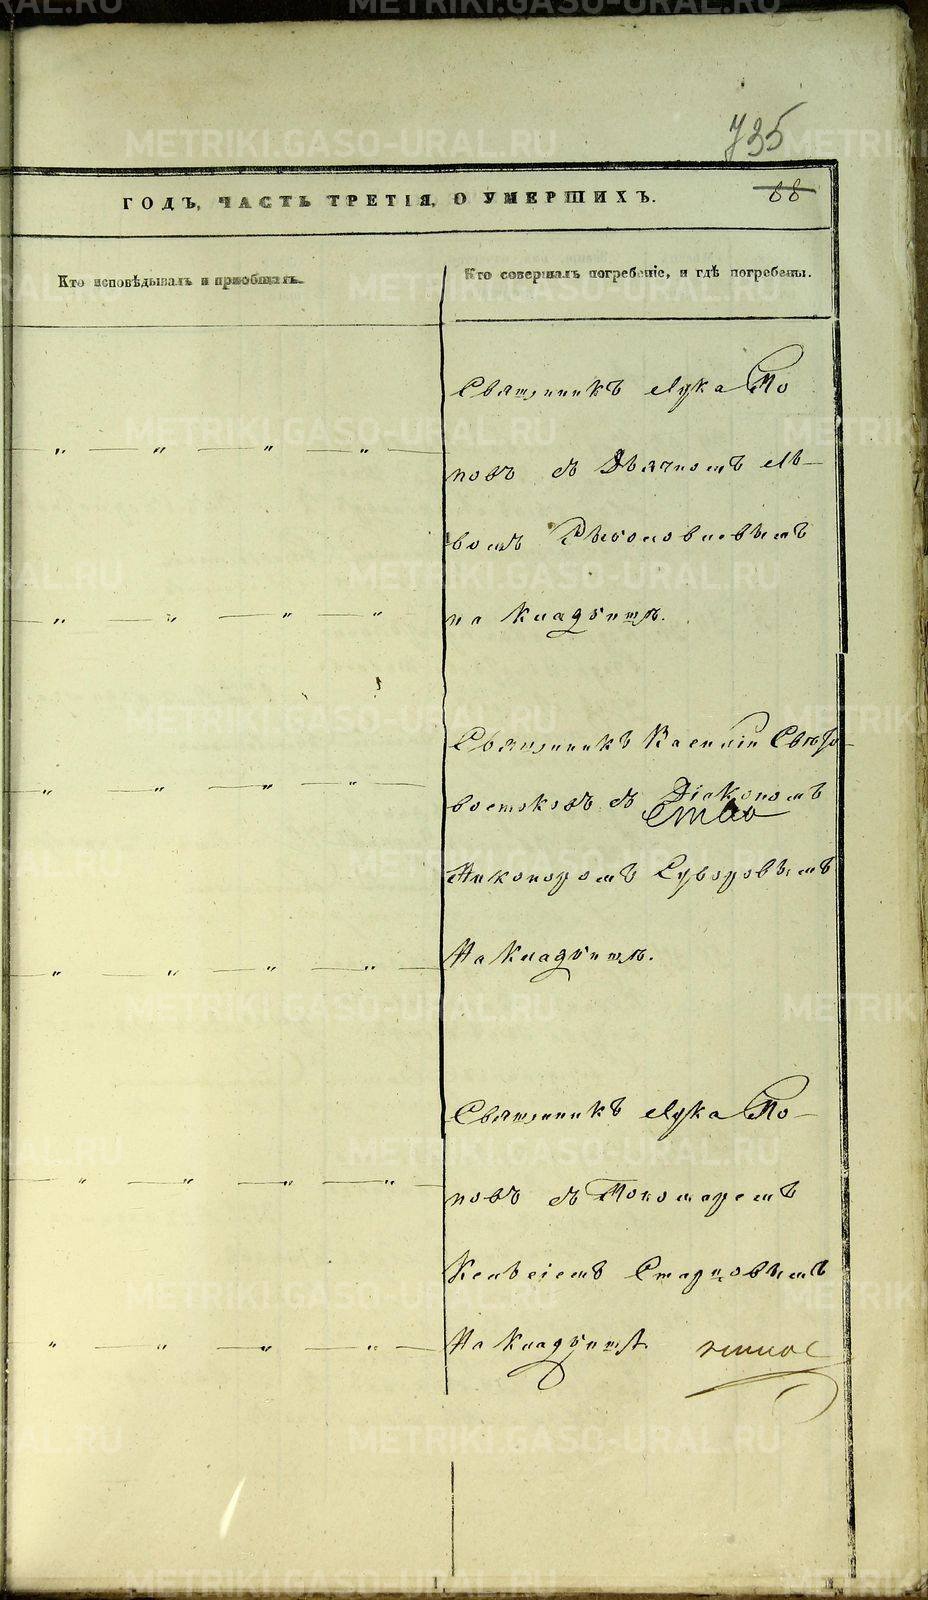 735
ГОДЪ, ЧАСТЬ ТРЕТІЯ, О УМЕРШИХЪ.
88
Кто исповѣдывалъ и пріобщалъ.
Кто совершалъ погребеніе, и гдѣ погребены.
Священникъ Лука По
повъ съ Дьячкомъ Ль
вомъ
на кладбищѣ.
Священникъ Василій Свѣто
востоковъ съ Діакономъ
Никоноромъ Суворовымъ
На кладбищѣ.
Священникъ Лука По-
повъ съ Пономаремъ
Старцовымъ
На кладбищѣ
METRIKI.GASO-URAL.RU